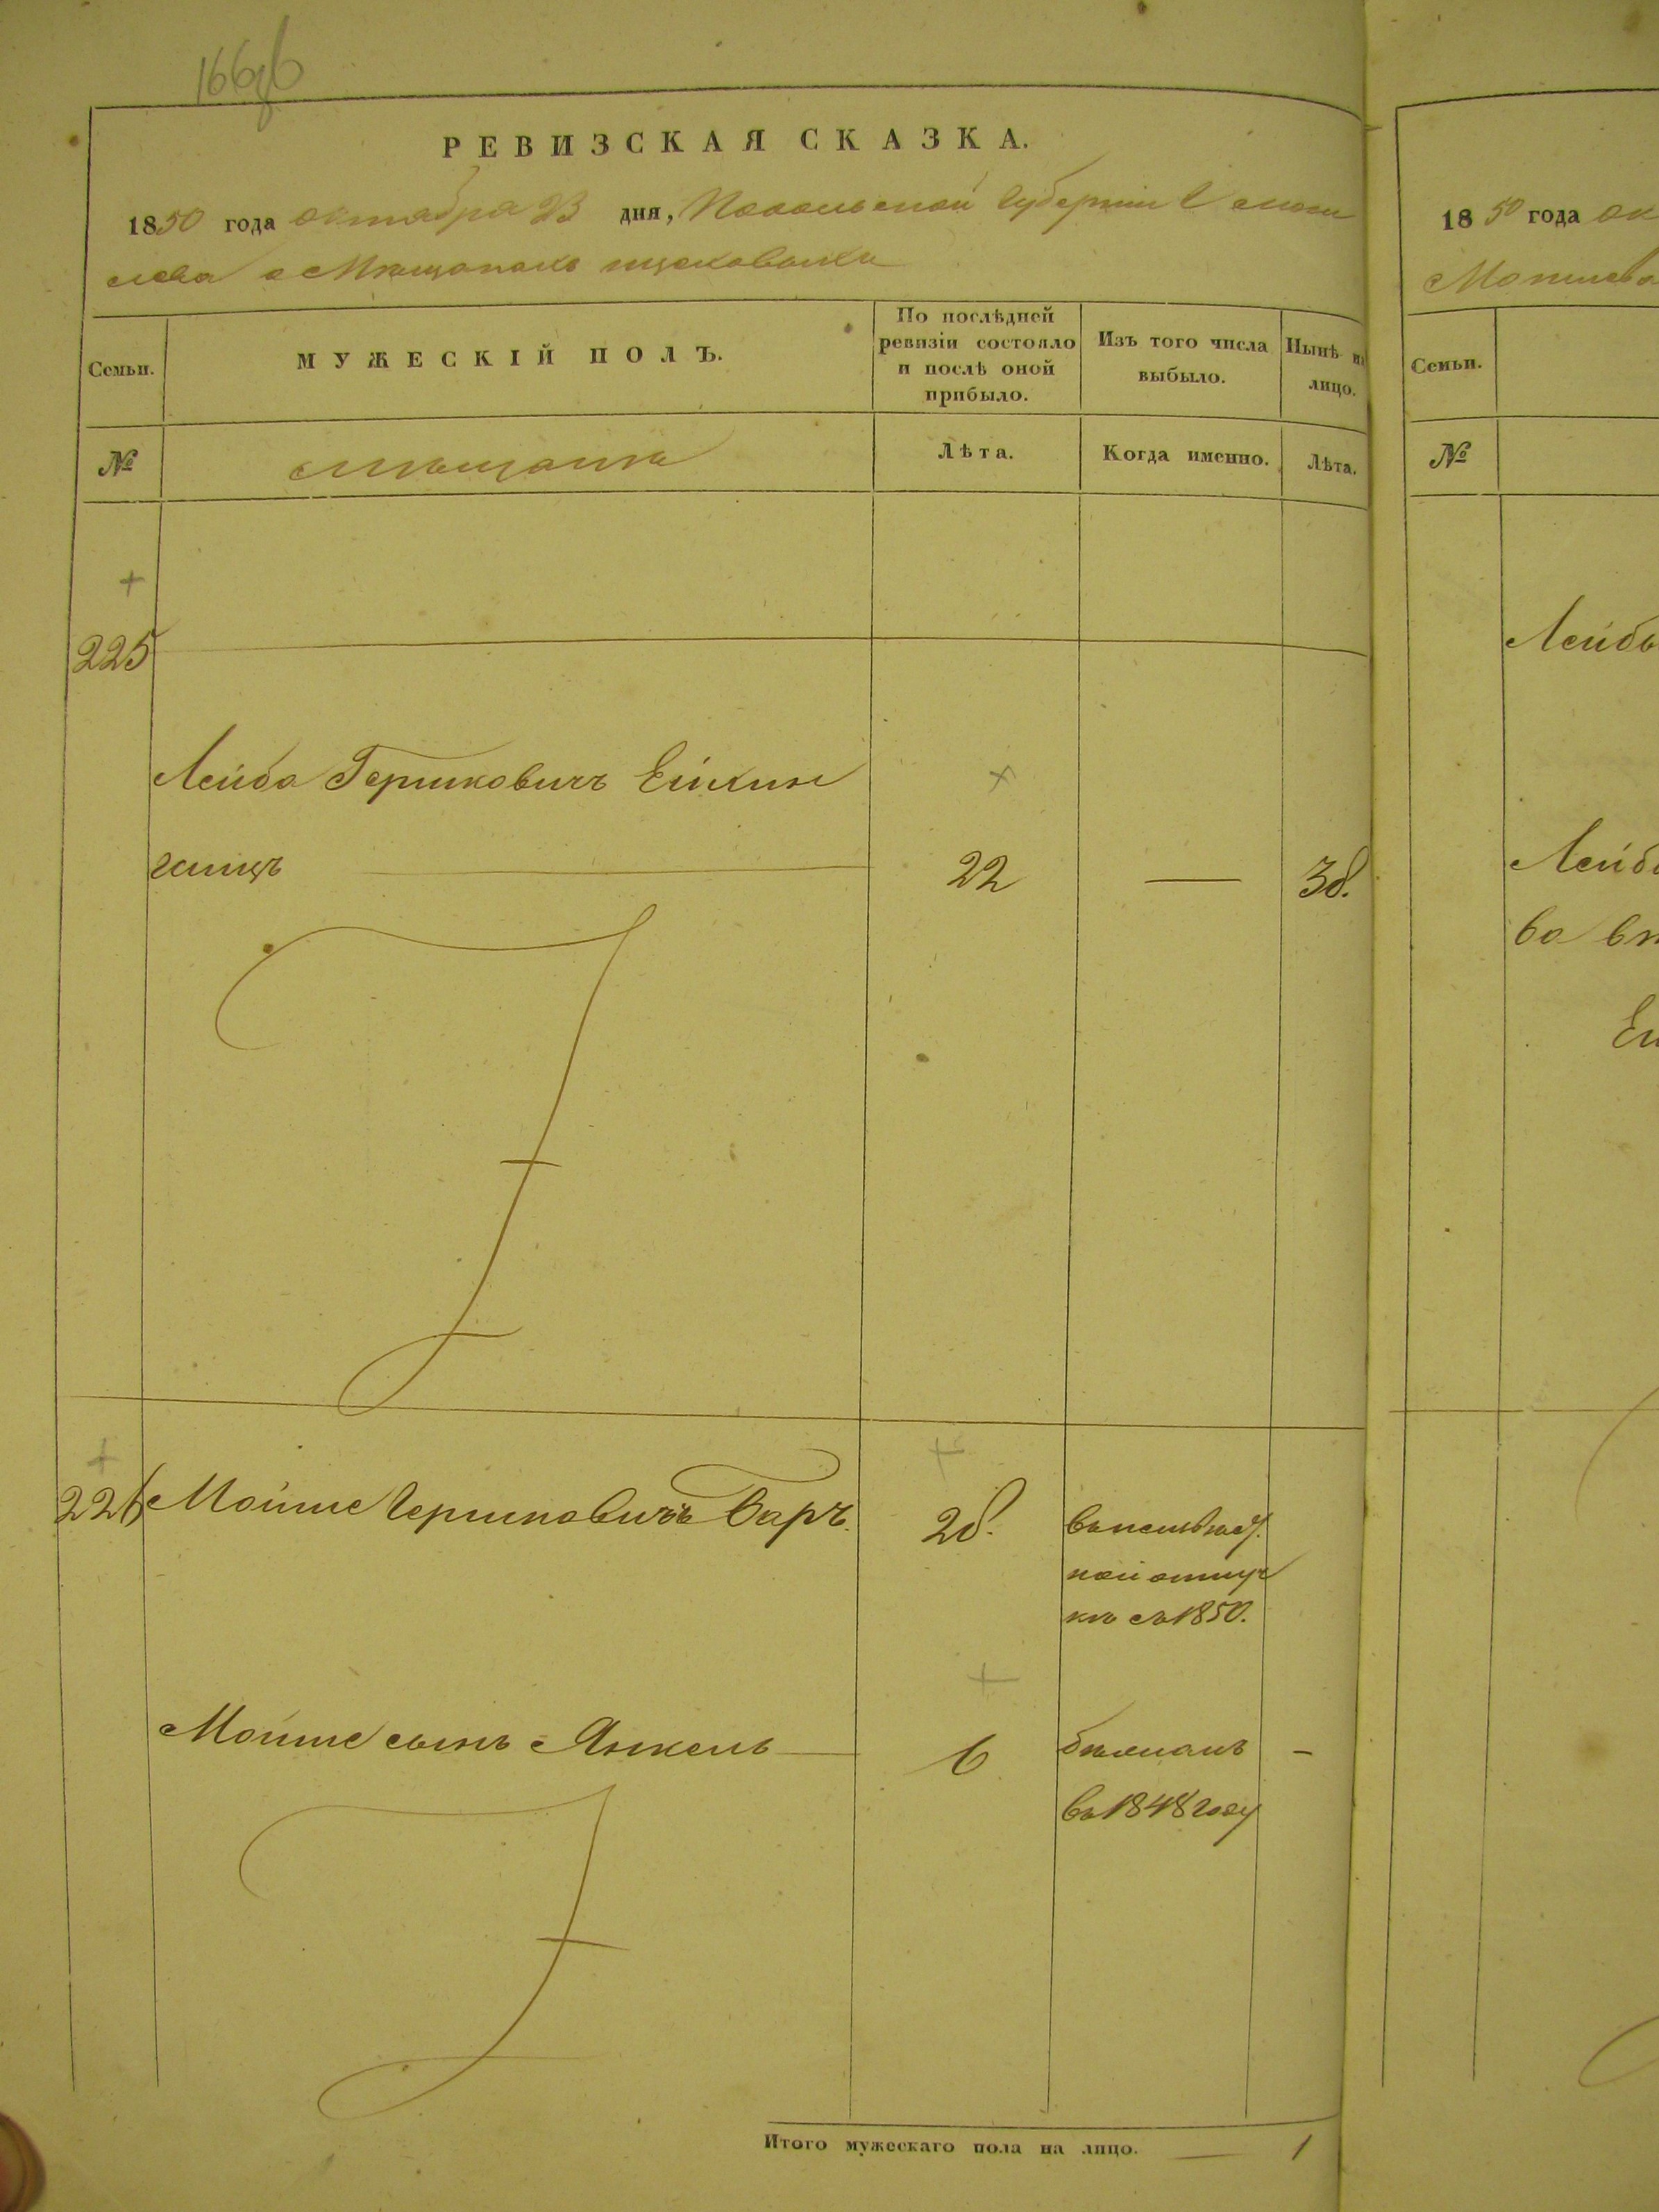 166об
РЕВИЗСКАЯ СКАЗКА.
1850 года октября 23 дня, Подольской Губернiи Г Моги
лева о Мѣщанахъ
Семьи.
МУЖЕСКIЙ ПОЛЪ.
По послѣдней ревизiи состояло и послѣ оной прибыло.
Изъ того числа выбыло.
Нынѣ на лицо.
№
мѣщане
Лѣта.
Когда именно.
Лѣта.
225
Лейба Гершковичъ Ейхин
гецъ
22
—
38.
226
Мойше Гершковичъ Баръ.
28.
ной отлуч
кѣ съ 1850.
Мойше сынъ Янкель
6
въ 1848 году
-
Итого мужескаго пола на лицо. — 1
18 50 года ок
Могилева
Семьи.
№
Лейбы
Лейб
во вт